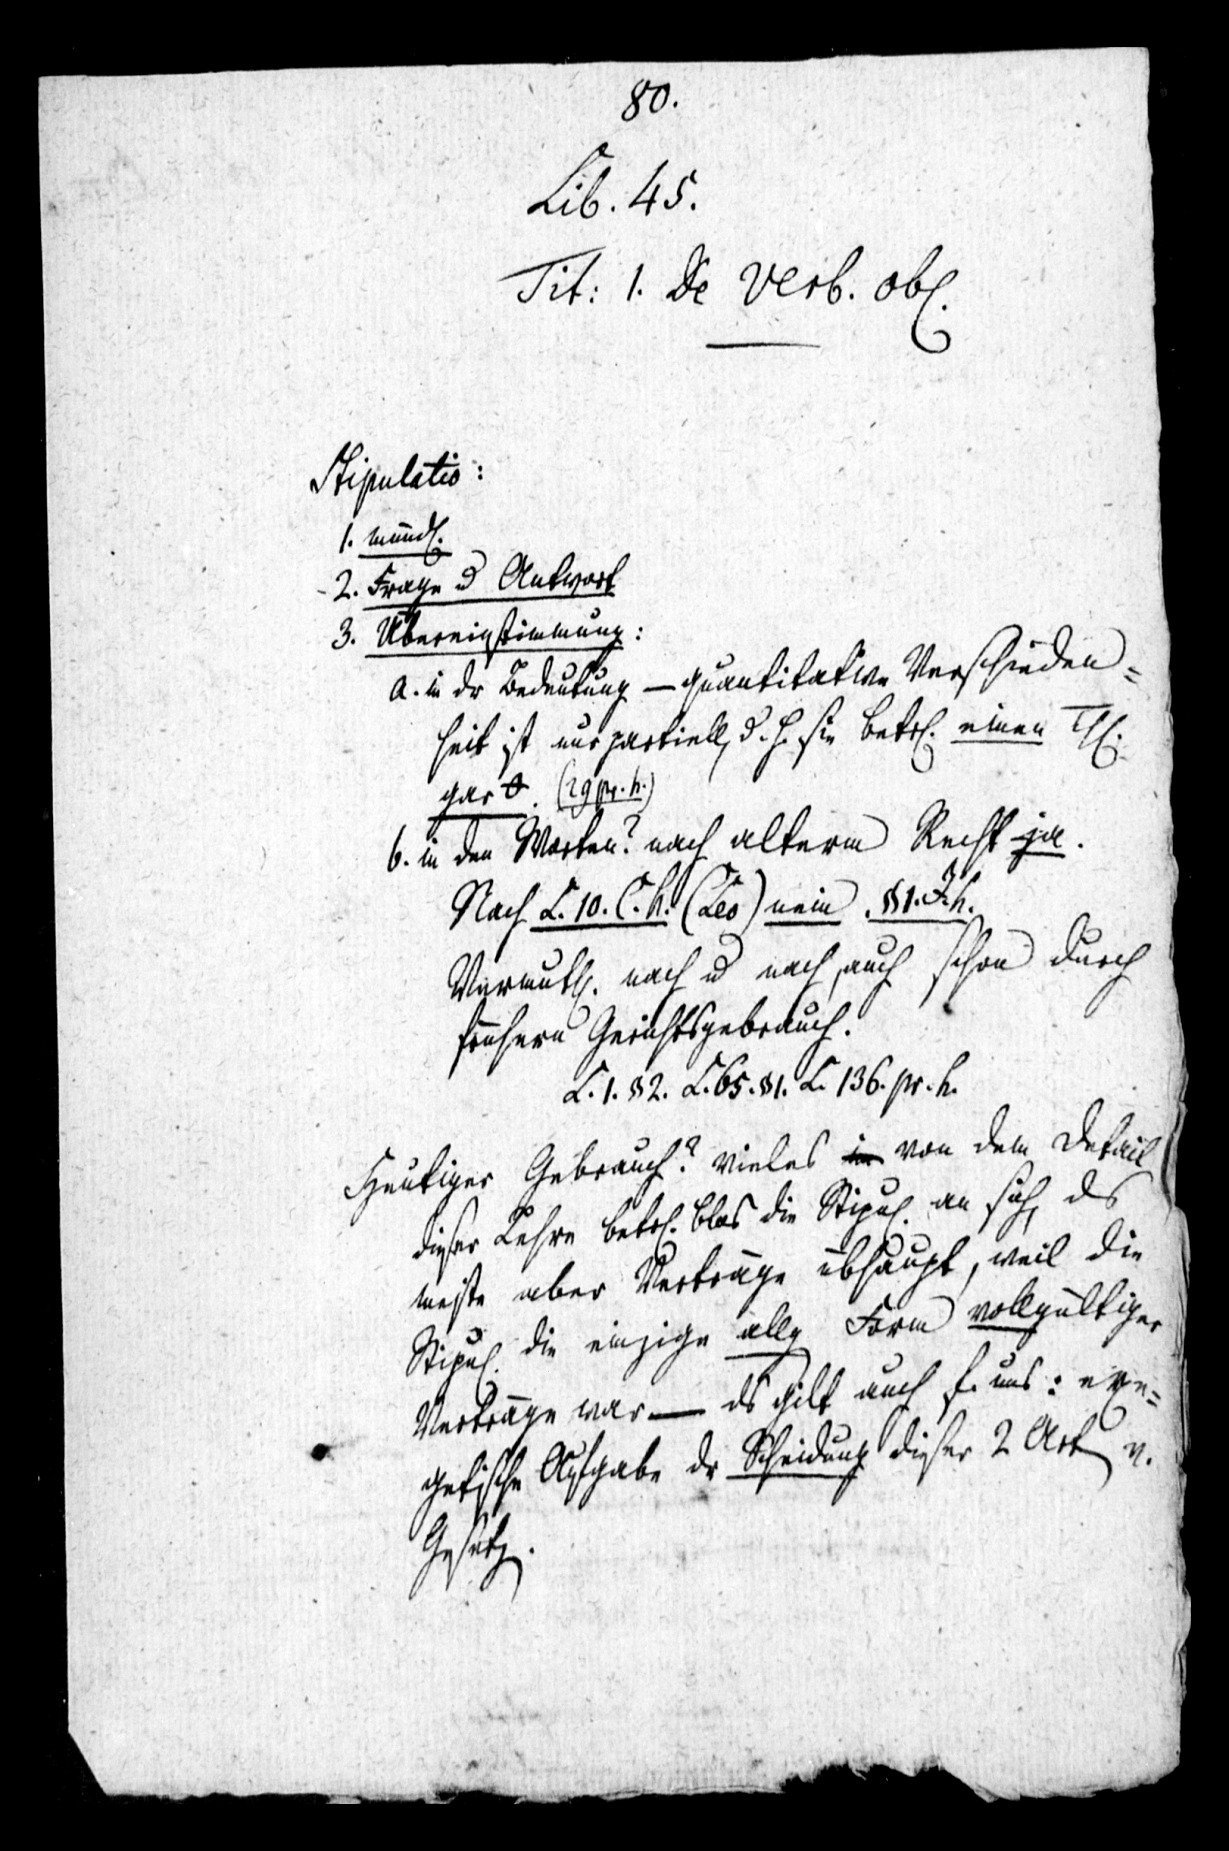 80.
Lib. 45.
Tit: 1. De verb. obl.
Stipulatio:
1. mündl.
2. Frage u Antwort
3. Übereinstimmung:
a. in dr Bedeutung — quantitative Verschieden=
heit ist nur partiell, d. h. sie betr. einen Th.
gar (29 pr. h.)
b. in den Worten? nach alterm Recht ja.
Nach L. 10. C. h. (Leo) nein. §1. J. h.
Vermuthl. nach u nach, auch schon durch
frühern Gerichtsgebrauch.
L. 1. §2. L. 65. §1. L. 136. pr. h.
Heutiger Gebrauch? vieles von dem Detail
dieser Lehre betr. blos die Stipul. an sich, ds
meiste aber Verträge übhaupt, weil die
Stipul. die einzige allg Form vollgültiger
Verträge war — ds gilt auch f. uns: exe=
getische Aufgabe dr Scheidung dieser 2 Art v.
Gesetz.